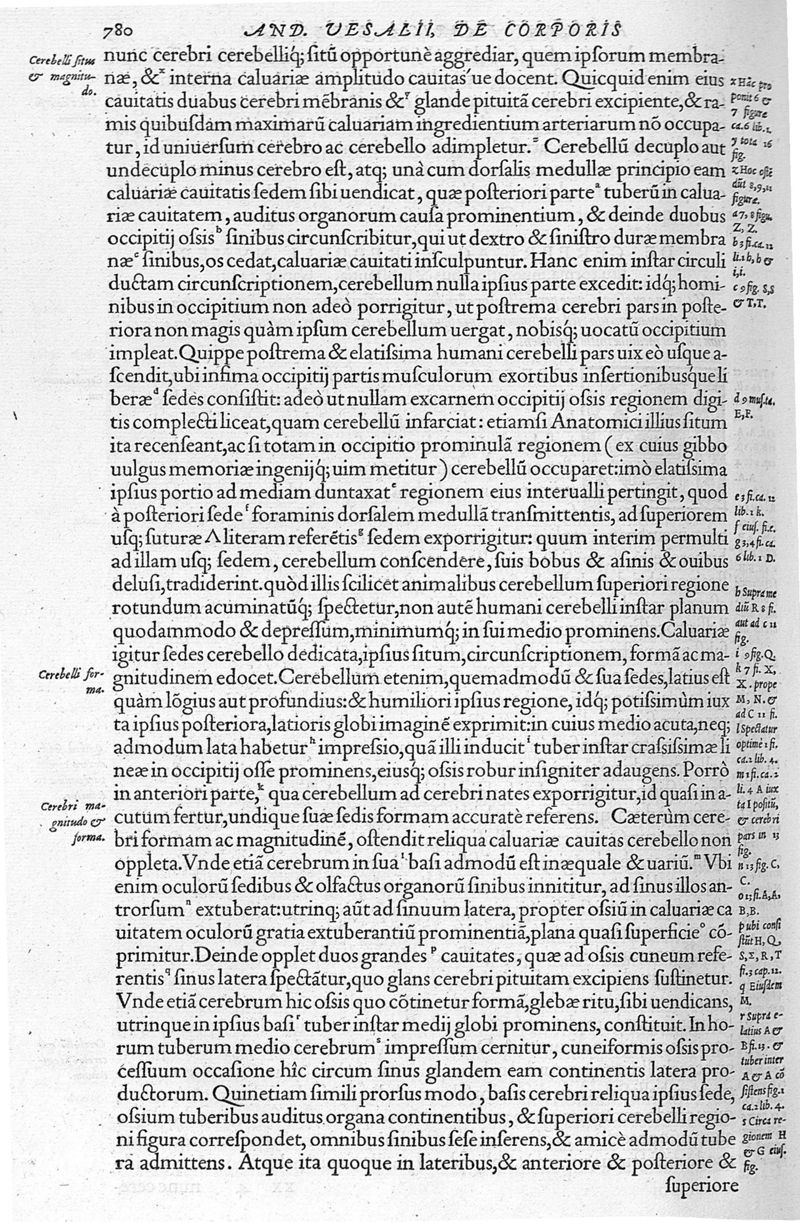 780 AND. VESALII, DE CORPORIS
Cerebelli situs
& magnitu-
do.
nunc cerebri cerebelliq; sitũ opportunè aggrediar, quem ipsorum membra-
næ, &ˣ interna caluariæ amplitudo cauitas´ue docent. Quicquid enim eius
cauitatis duabus cerebri mẽbranis &ʸ glande pituitã cerebri excipiente,& ra-
mis quibusdam maximarũ caluariam ingredientium arteriarum nõ occupa-
tur, id uniuersum cerebro ac cerebello adimpletur.ᶻ Cerebellũ decuplo aut
undecuplo minus cerebro est, atq; unà cum dorsalis medullæ principio eam
caluariæ cauitatis sedem sibi uendicat, quæ posteriori parteᵃ tuberũ in calua-
riæ cauitatem, auditus organorum causa prominentium, & deinde duobus
occipitij ossisᵇ sinibus circunscribitur, qui ut dextro & sinistro duræ membra
næᶜ sinibus, os cedat, caluariæ cauitati insculpuntur. Hanc enim instar circuli
ductam circunscriptionem, cerebellum nulla ipsius parte excedit: idq; homi-
nibus in occipitium non adeò porrigitur, ut postrema cerebri pars in poste-
riora non magis quàm ipsum cerebellum uergat, nobisq; uocatũ occipitium
impleat. Quippe postrema & elatissima humani cerebelli pars uix eò usque a-
scendit, ubi infima occipitij partis musculorum exortibus insertionibusq́ue li
beræᵈ sedes consistit: adeò ut nullam excarnem occipitij ossis regionem digi-
tis complecti liceat, quam cerebellũ infarciat: etiamsi Anatomici illius situm
ita recenseant, ac si totam in occipitio prominulã regionem (ex cuius gibbo
uulgus memoriæ ingenijq; uim metitur) cerebellũ occuparet: imò elatissima
ipsius portio ad mediam duntaxatᵉ regionem eius interualli pertingit, quod
à posteriori sedeᶠ foraminis dorsalem medullã transmittentis, ad superiorem
usq; suturæ Λ literam referẽtisᵍ sedem exporrigitur: quum interim permulti
ad illam usq; sedem, cerebellum conscendere, suis bobus & asinis & ouibus
delusi, tradiderint. quòd illis scilicet animalibus cerebellum superiori regione
rotundum acuminatũq; spectetur, non autẽ humani cerebelli instar planum
quodammodo & depressum, minimumq; in sui medio prominens. Caluariæ
igitur sedes cerebello dedicata, ipsius situm, circunscriptionem, formã ac ma-
Cerebelli for-
ma.
gnitudinem edocet. Cerebellum etenim, quemadmodũ & sua sedes, latius est
quàm lõgius aut profundius: & humiliori ipsius regione, idq; potissimùm iux
ta ipsius posteriora, latioris globi imaginẽ exprimit: in cuius medio acuta, neq;
admodum lata habeturʰ impressio, quã illi inducitⁱ tuber instar crassissimæ li
neæ in occipitij osse prominens, eiusq; ossis robur insigniter adaugens. Porrò
in anteriori parte,ᵏ qua cerebellum ad cerebri nates exporrigitur, id quasi in a-
Cerebri ma-
gnitudo &
forma.
cutum fertur, undique suæ sedis formam accuratè referens. Cæterùm cere-
bri formam ac magnitudinẽ, ostendit reliqua caluariæ cauitas cerebello non
oppleta. Vnde etiã cerebrum in suaˡ basi admodũ est inæquale & uariũ.ᵐ Vbi
enim oculorũ sedibus & olfactus organorũ sinibus innititur, ad sinus illos an-
trorsumⁿ extuberat: utrinq; aũt ad sinuum latera, propter ossiũ in caluariæ ca
uitatem oculorũ gratia extuberantiũ prominentiã, plana quasi superficieᵒ cõ-
primitur. Deinde opplet duos grandesᵖ cauitates, quæ ad ossis cuneum refe-
rentisq sinus latera spectãtur, quo glans cerebri pituitam excipiens sustinetur.
Vnde etiã cerebrum hic ossis quo cõtinetur formã, glebæ ritu, sibi uendicans,
utrinque in ipsius basiʳ tuber instar medij globi prominens, constituit. In ho-
rum tuberum medio cerebrumˢ impressum cernitur, cuneiformis ossis pro-
cessuum occasione hîc circum sinus glandem eam continentis latera pro-
ductorum. Quinetiam simili prorsus modo, basis cerebri reliqua ipsius sede,
ossium tuberibus auditus organa continentibus, & superiori cerebelli regio-
ni figura correspõdet, omnibus sinibus sese inserens, & amicè admodũ tube
ra admittens. Atque ita quoque in lateribus, & anteriore & posteriore &
superiore
x Hãc pro
ponit 6 &
7 figura
ca.6 lib.1.
y tota 16
fig.
z Hoc ostẽ
dũt 8,9,11
figuræ.
a 7, 8 figu.
Z, Z.
b 3 fi.ca.12
li.1 b, b &
i,i.
c 9 fig. S,S
& T,T.
d 9 mus.ta.
E,E.
e 3 fi. ca. 12
lib. 1 k.
f eius. fi.e.
g 3,4 fi. ca.
6 lib. 1 D.
h Supra me
diũ R 8 fi.
aut ad c 11
fig.
i 9 fig.Q.
k 7 fi. X,
X. prope
M, N. &
ad C 11 fi.
l Spectatur
optimè 1 fi.
ca.2 lib. 4.
m 1 fi.ca.2
li. 4 A iux
ta I positũ,
& cerebri
pars in 13
fig.
n 13 fig. C,
C.
o 13 fi. A,A,
B,B.
p ubi consi
stũt H, Q,
S, X, R, T
fi.3 cap.12.
q Eiusdem
M.
r Supra e-
latius A &
B fi.13. &
tuber inter
A & A cõ
sistens fig.1
ca.2 lib. 4.
s Circa re-
gionem H
& G eius.
fig.